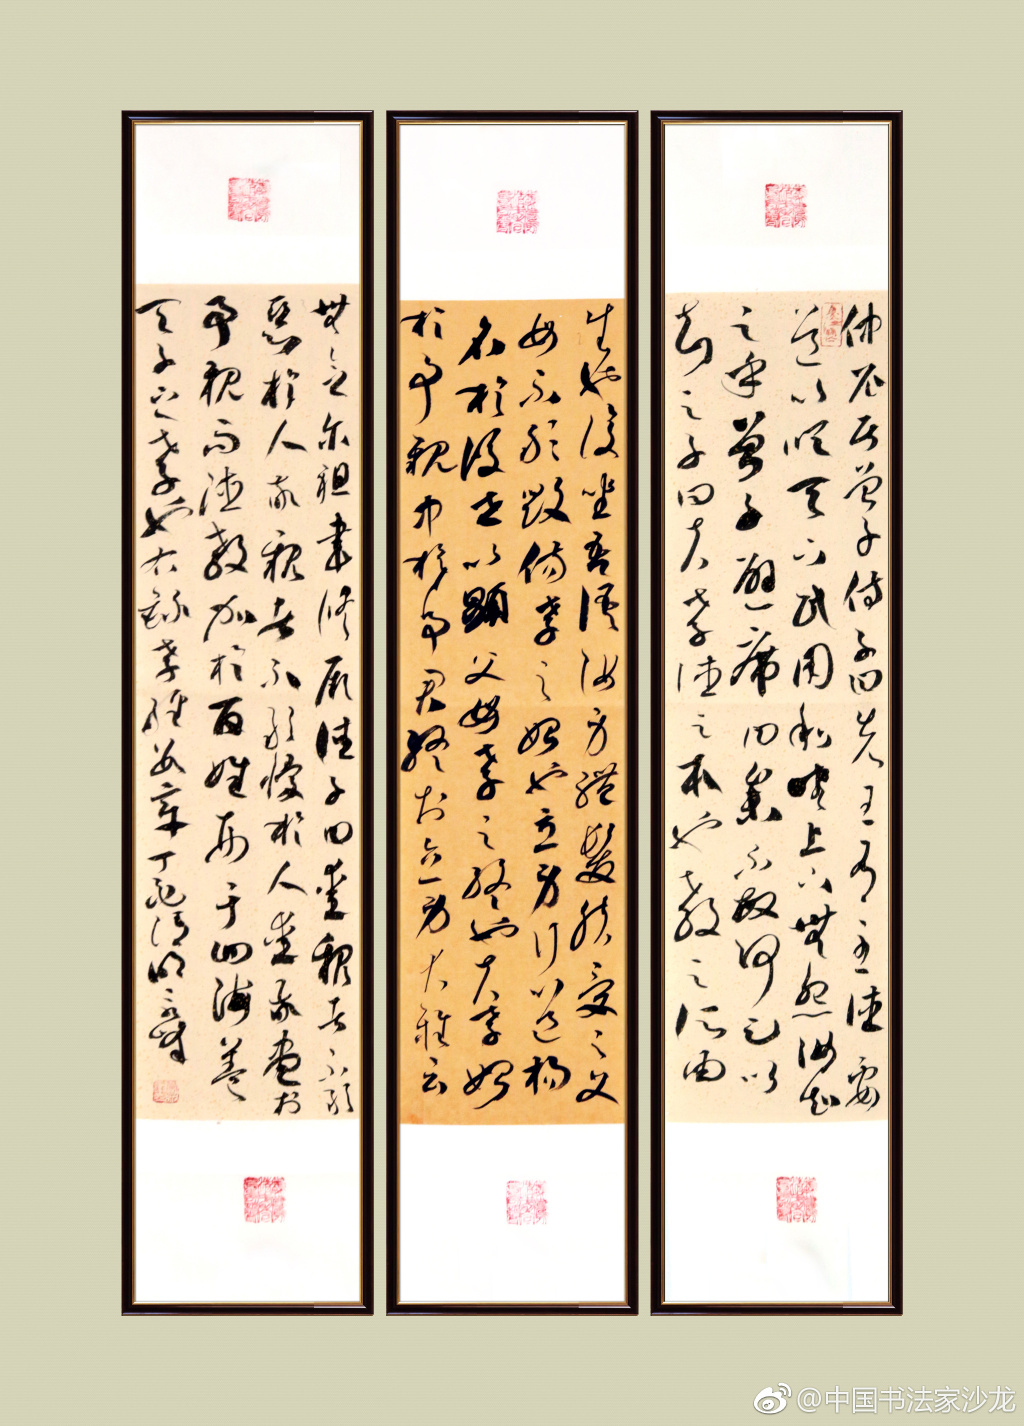 仲尼居曾子侍子曰先王有至德要
道以順天下民用和睦上下無怨汝知
之乎曾子避席曰參不敏何足以
知之子曰夫孝德之本也教之所由
生也復坐吾語汝身體髮膚受之父
母不敢毀傷孝之始也立身行道揚
名於後世以顯父母孝之終也夫孝始
於事親中於事君終於立身大雅云
無念爾祖聿修厥德子曰愛親者不敢
惡於人敬親者不敢慢於人愛敬盡於
事親而德教加於百姓刑于四海蓋
天子之孝也右錄孝經章丁酉清明
@中国书法家沙龙